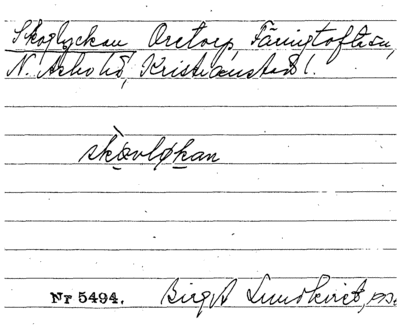 Skoglyckan Oretorp, Färingtofta sn,
N. Åsbo hd, Kristianstad l.
skòvløkan
Nr 5494. Birgit Lundkvist,